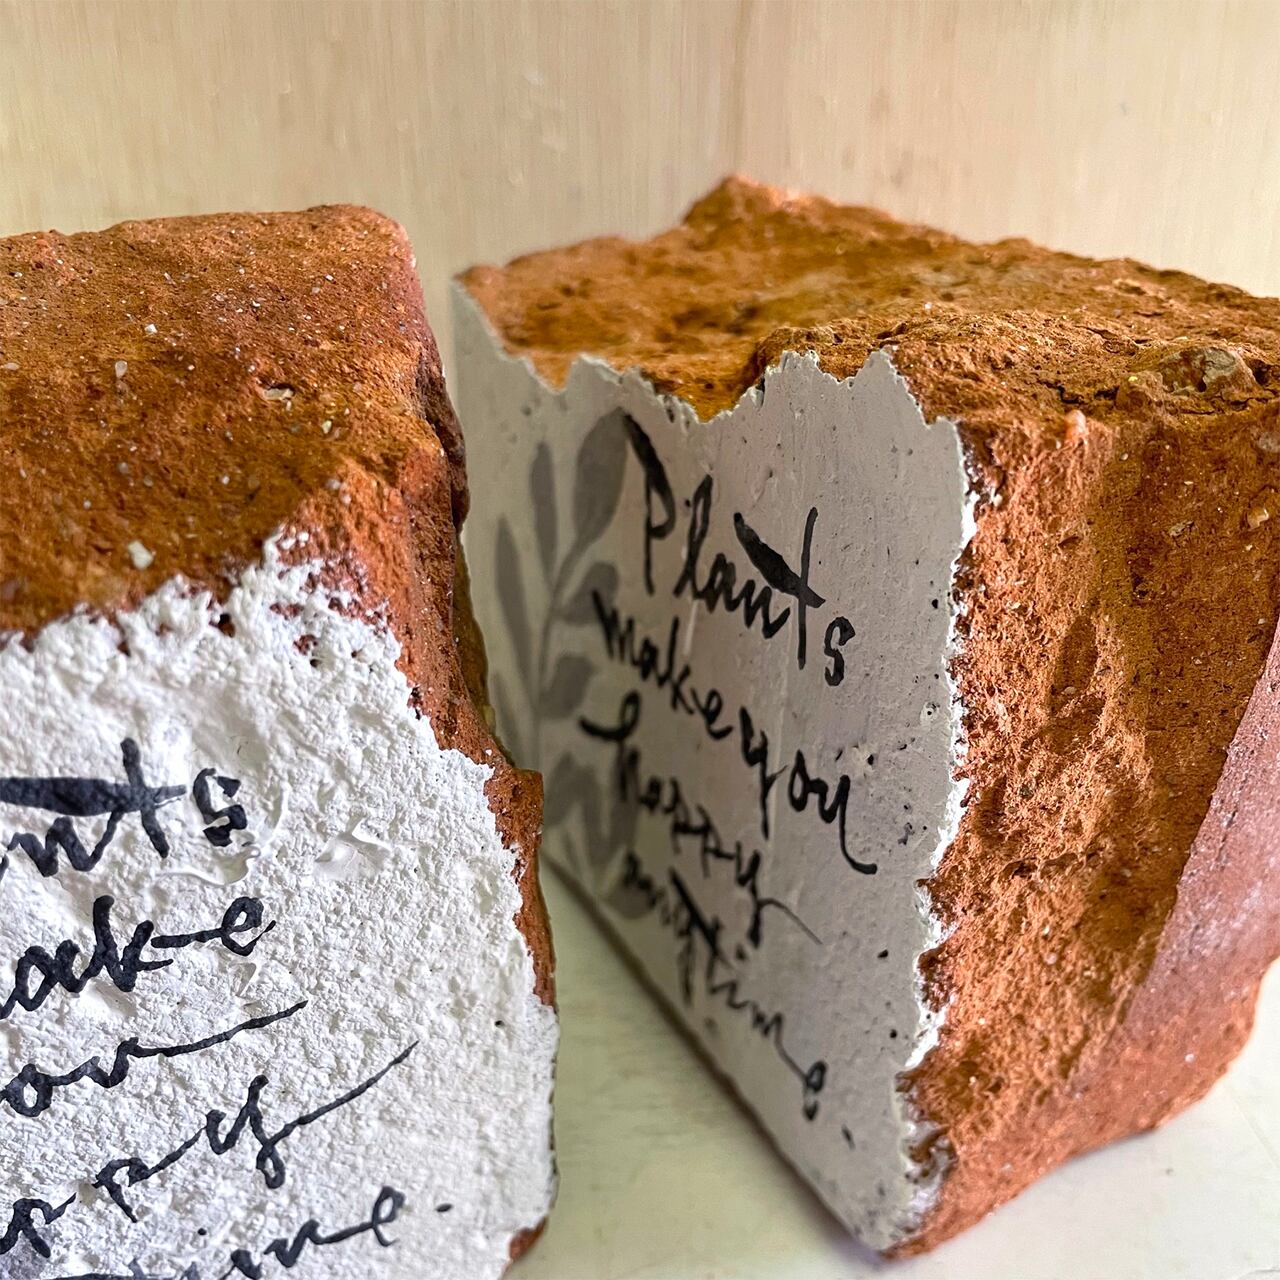 nts
ake
ou
ppy
ime.
Plants
make you
happy
anytime.